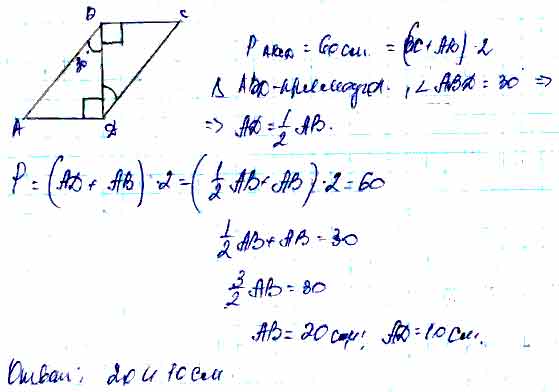 B C
30°
A D
P ABCD = 60 см. = (BC + AB) · 2
Δ ABD - прямоугол. , ∠ ABD = 30° ⇒
⇒ AD = 1/2 AB.
P = (AD + AB) · 2 = (1/2 AB + AB) · 2 = 60
1/2 AB + AB = 30
3/2 AB = 30
AB = 20 см; AD = 10 см.
Ответ: 20 и 10 см.